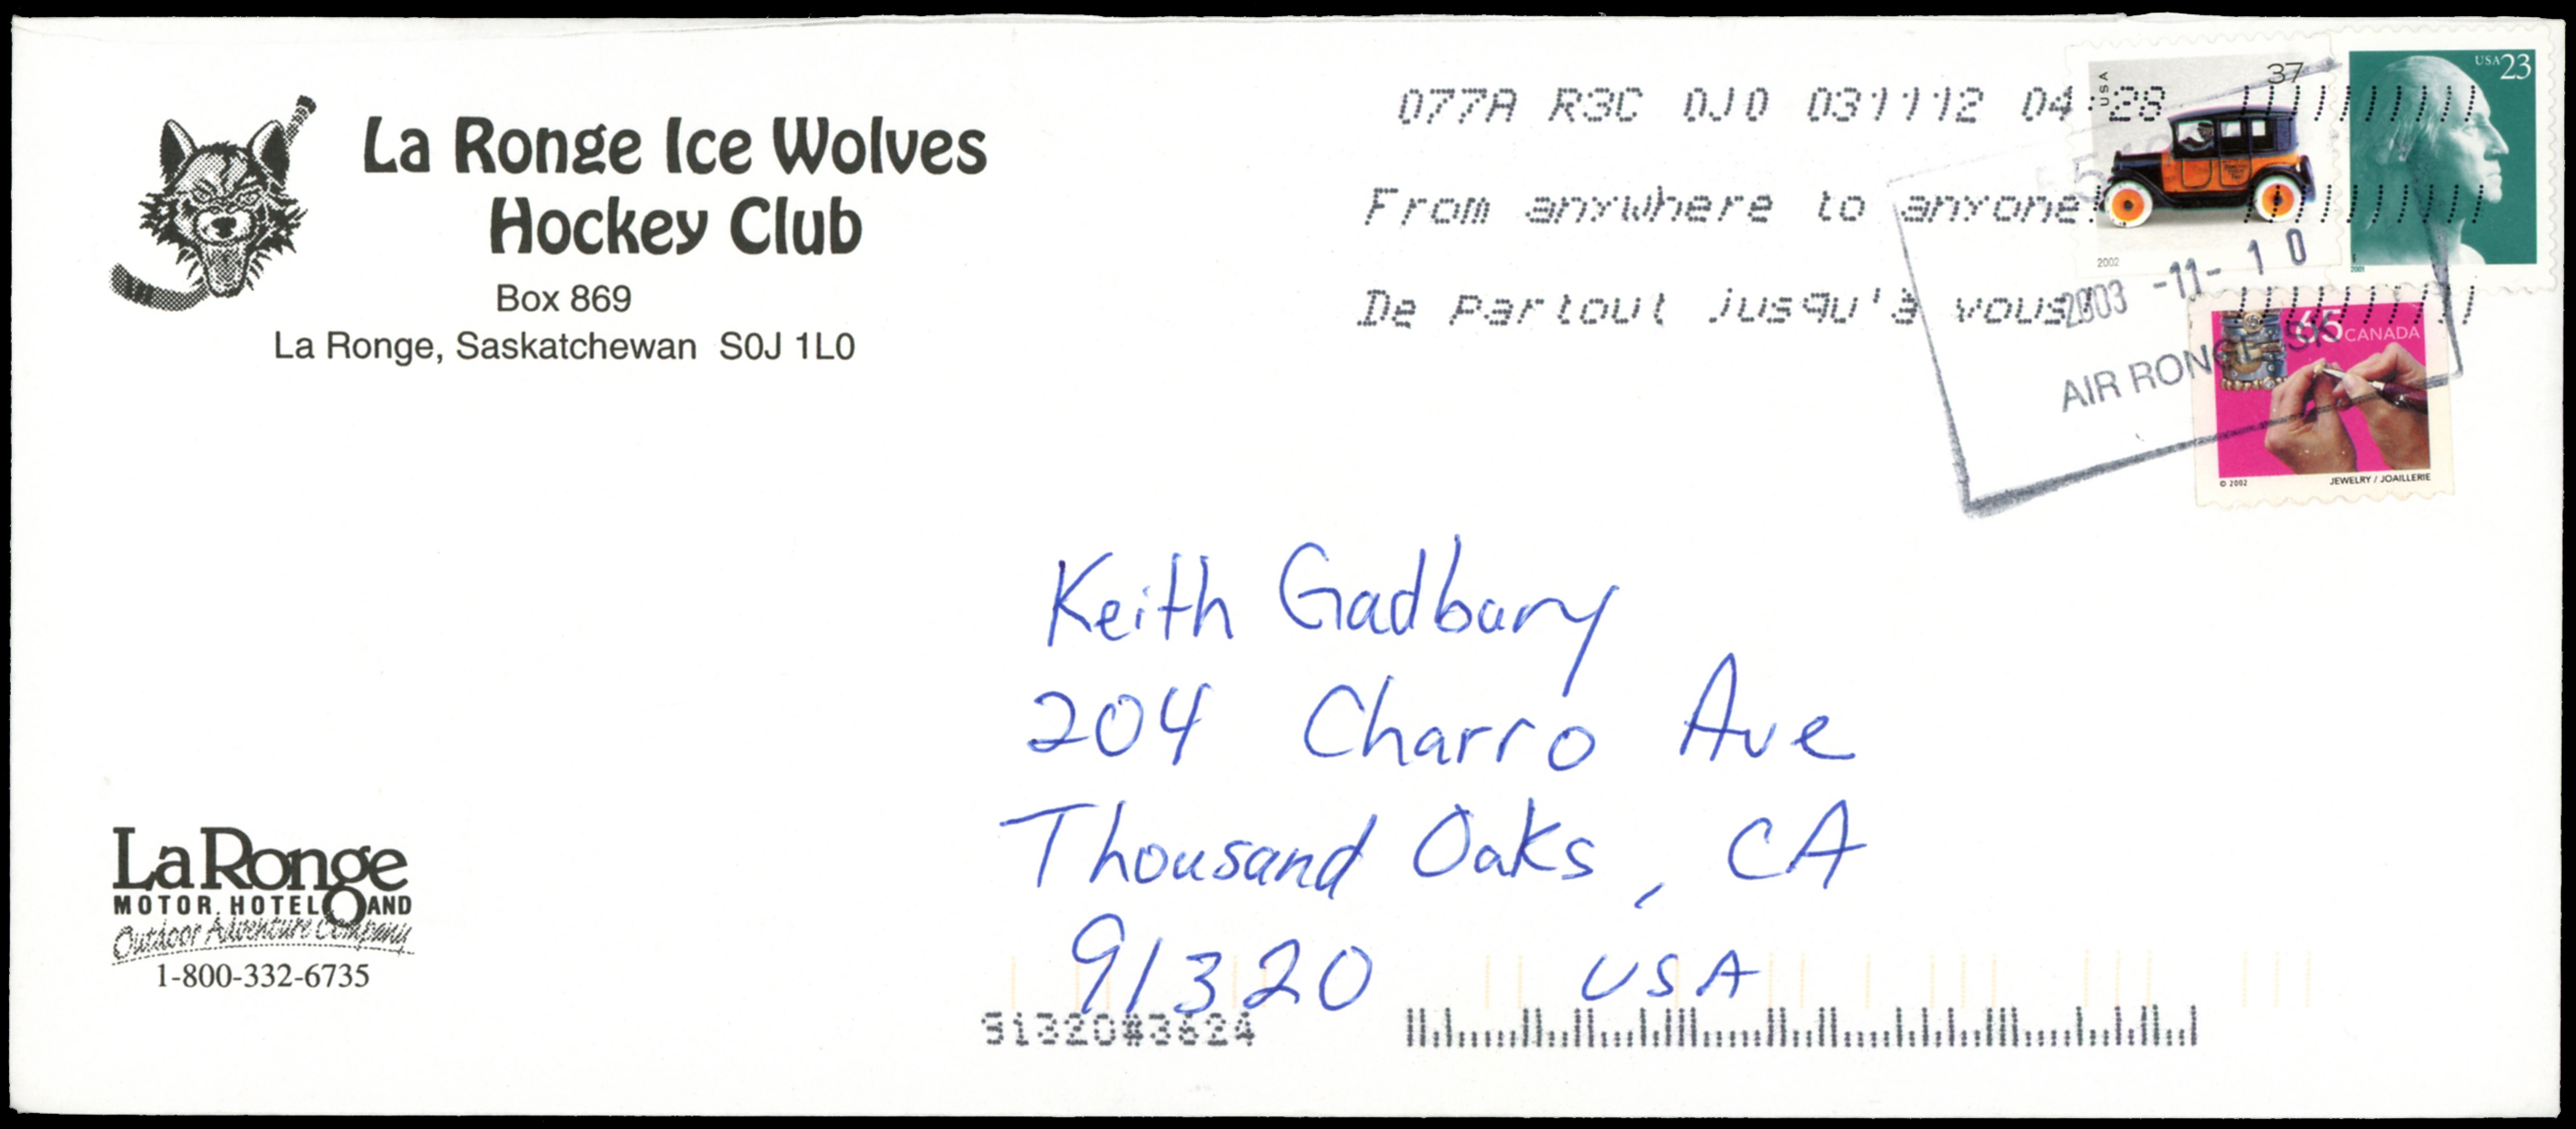 La Ronge Ice Wolves
Hockey Club
Box 869
La Ronge, Saskatchewan S0J 1L0
077A R3C 0J0 031112 04:28
From anywhere to anyone
De partout jusqu'à vous
USA
37
2002
USA 23
2001
2003 -11- 10
AIR RONGE SK
65 CANADA
© 2002
JEWELRY / JOAILLERIE
Keith Gadbury
204 Charro Ave
Thousand Oaks, CA
91320 USA
La Ronge
MOTOR HOTEL AND
Outdoor Adventure Company
1-800-332-6735
91320#3624